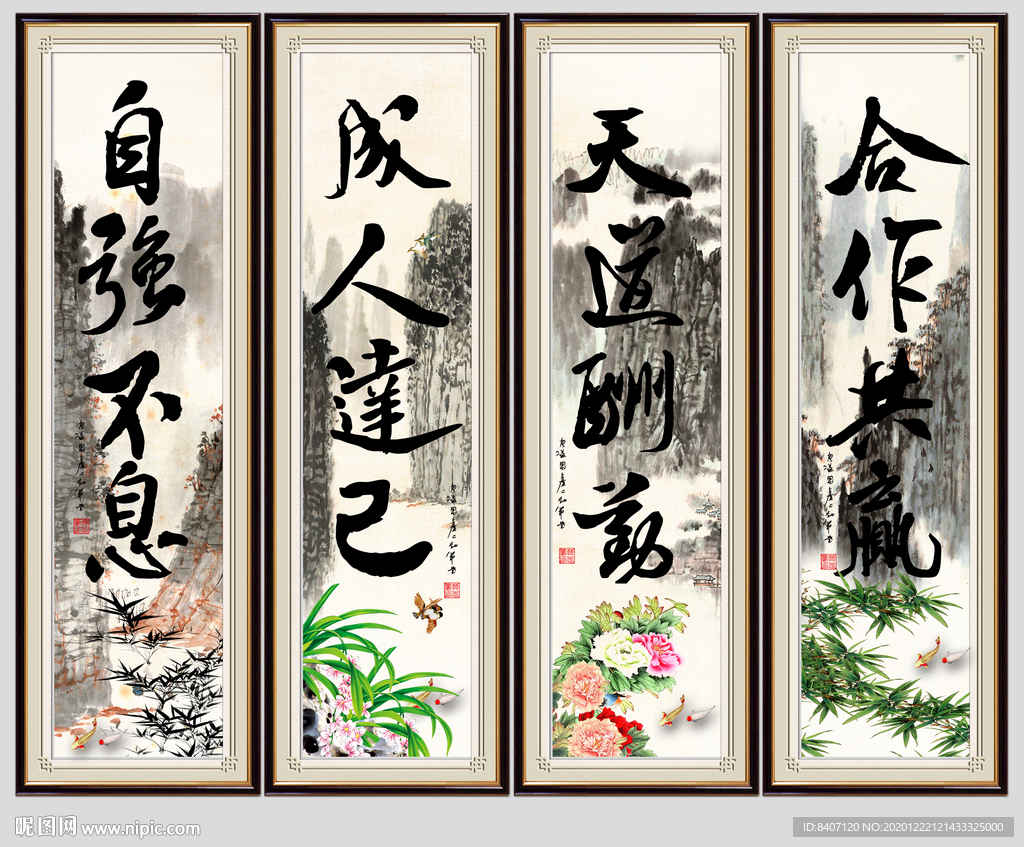 自強不息
成人達己
天道酬勤
合作共贏
昵图网 www.nipic.com
ID:8407120 NO:20201222121433325000